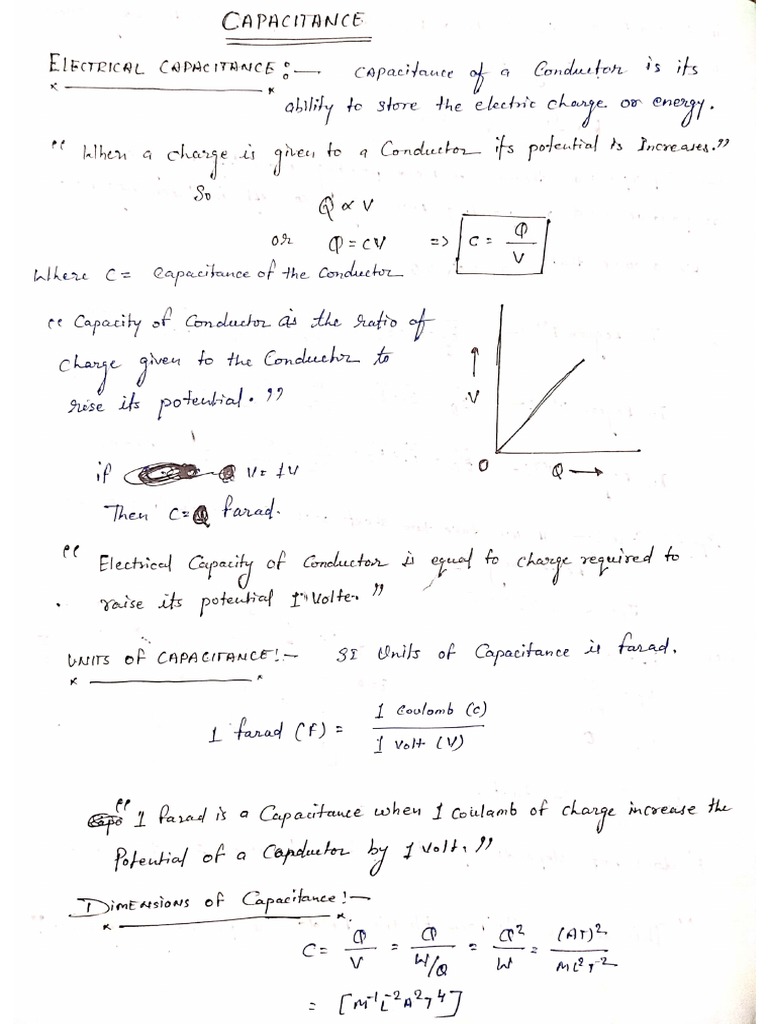 CAPACITANCE
ELECTRICAL CAPACITANCE :— Capacitance of a Conductor is its
ability to store the electric charge or energy.
“ When a charge is given to a Conductor its potential is Increases.”
So
Q ∝ V
or Q = CV => C = Q/V
Where C = Capacitance of the Conductor
“ Capacity of Conductor is the ratio of
charge given to the Conductor to
rise its potential. ”
↑
V
O Q →
if V = 1V
Then C = Q farad.
“ Electrical Capacity of Conductor is equal to charge required to
raise its potential 1 Volte. ”
UNITS OF CAPACITANCE!— SI Units of Capacitance is farad.
1 farad (F) = 1 Coulomb (C) / 1 Volt (V)
“ 1 Farad is a Capacitance when 1 Coulamb of charge increase the
Potential of a Conductor by 1 Volt. ”
DIMENSIONS OF Capacitance!—
C = Q/V = Q/(W/Q) = Q²/W = (AT)²/ML²T⁻²
= [M⁻¹L⁻²A²T⁴]